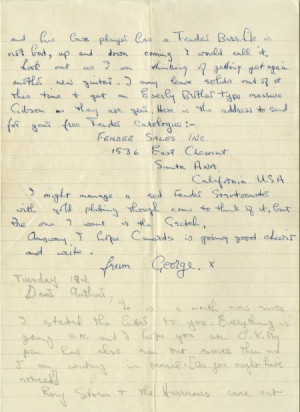 and his bass player has a Fender Bass. He is
not bad, up and down coming I would call it.
Look out as I am thinking of getting yet again
another new guitar. I may leave solids out of it
this time & get an Everly Brother type massive
Gibson as they are you. Here is the address to send
for your free Fender catalogue:-
FENDER SALES INC
1536 East Chesnut
Santa ANA
California. USA
I might manage a red Fender Stratocaster
with gold plating though come to think of it, but
the one I want is the Gretsch.
Anyway, I hope Cunards is going good cheers
and write.
from George. x
Tuesday 18th
Dear Arthur,
is a month now since
I started the letter to you. Everything is
going O.K. and I hope you are O.K. My
pen has also run out since then and
I am writing in pencil (As you might have
noticed)
Rory Storm & the Hurricanes came out